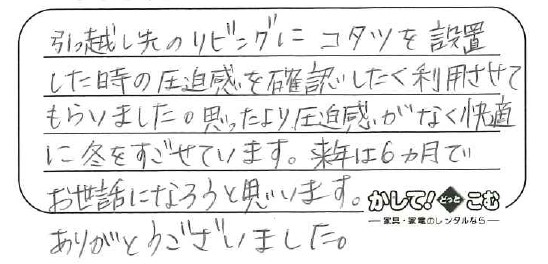 引越し先のリビングに コタツを 設置
した時の圧迫感を確認したく利用させて
もらいました。思ったより圧迫感がなく快適
に冬をすごせています。来年は6ヵ月で
お世話になろうと思います。
かして!どっとこむ
家具・家電のレンタルなら
ありがとうございました。